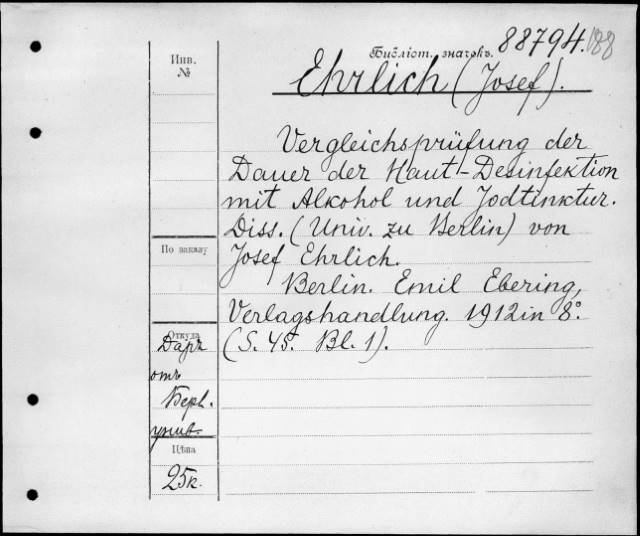 Библіот. значокъ. 88794. 188
Инв.
№
Ehrlich (Josef).
Vergleichsprüfung der
Dauer der Haut-Desinfektion
mit Alkohol und Jodtinktur.
Diss. (Univ. zu Berlin) von
Josef Ehrlich.
Berlin. Emil Ebering,
Verlagshandlung. 1912 in 8°.
(S. 45. Bl. 1).
По заказу
Откуда
Даръ
отъ
Берл.
унив.
Цѣна
25к.